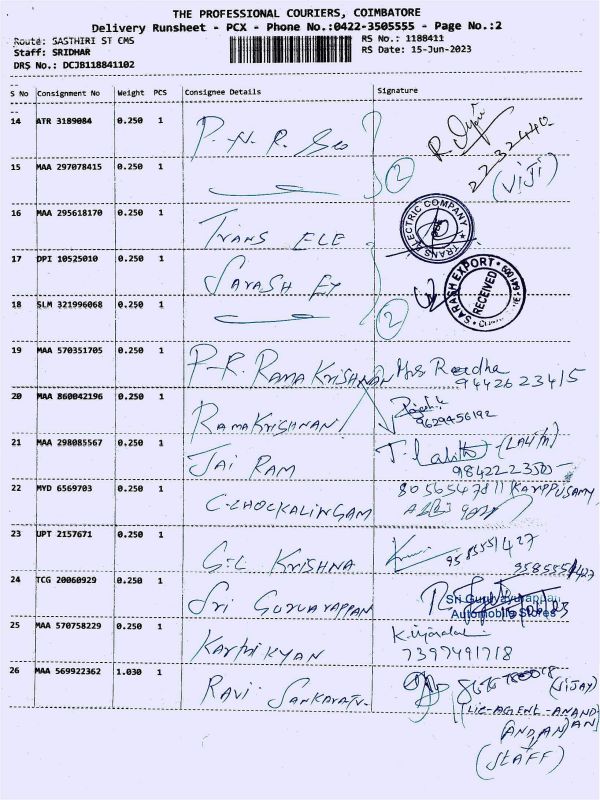 THE PROFESSIONAL COURIERS, COIMBATORE
Delivery Runsheet - PCX - Phone No.:0422-3505555 - Page No.:2
Route: SASTHIRI ST CMS RS No.: 1188411
Staff: SRIDHAR RS Date: 15-Jun-2023
DRS No.: DCJB118841102
S No Consignment No Weight PCS Consignee Details Signature
14 ATR 3189084 0.250 1 P. N. R. 2232440
15 MAA 297078415 0.250 1 2 (VIJI)
16 MAA 295618170 0.250 1 TRANS ELE TRANS ELECTRIC COMPANY
17 DPI 10525010 0.250 1 SARASH SARASH EXPORT RECEIVED
18 SLM 321996068 0.250 1 2
19 MAA 570351705 0.250 1 P.R. RAMA KRISHNAN Mrs Radha
9442623415
20 MAA 860042196 0.250 1 RAMAKRISHNAN
9629456192
21 MAA 298085567 0.250 1 JAI RAM T. Lalith (LALITH)
22 MYD 6569703 0.250 1 C. CHOCKALINGAM KARPPUSAMY
23 UPT 2157671 0.250 1 G.L KRISHNA
9585551427
24 TCG 20060929 0.250 1 SRI GURUVAYURAPPAN Sri Guruvayurappan
Automobile Stores
25 MAA 570758229 0.250 1 KARTHIKYAN
7397491718
26 MAA 569922362 1.030 1 RAVI (VIJAY)
(LIC-AGENT-ANAND
(STAFF)